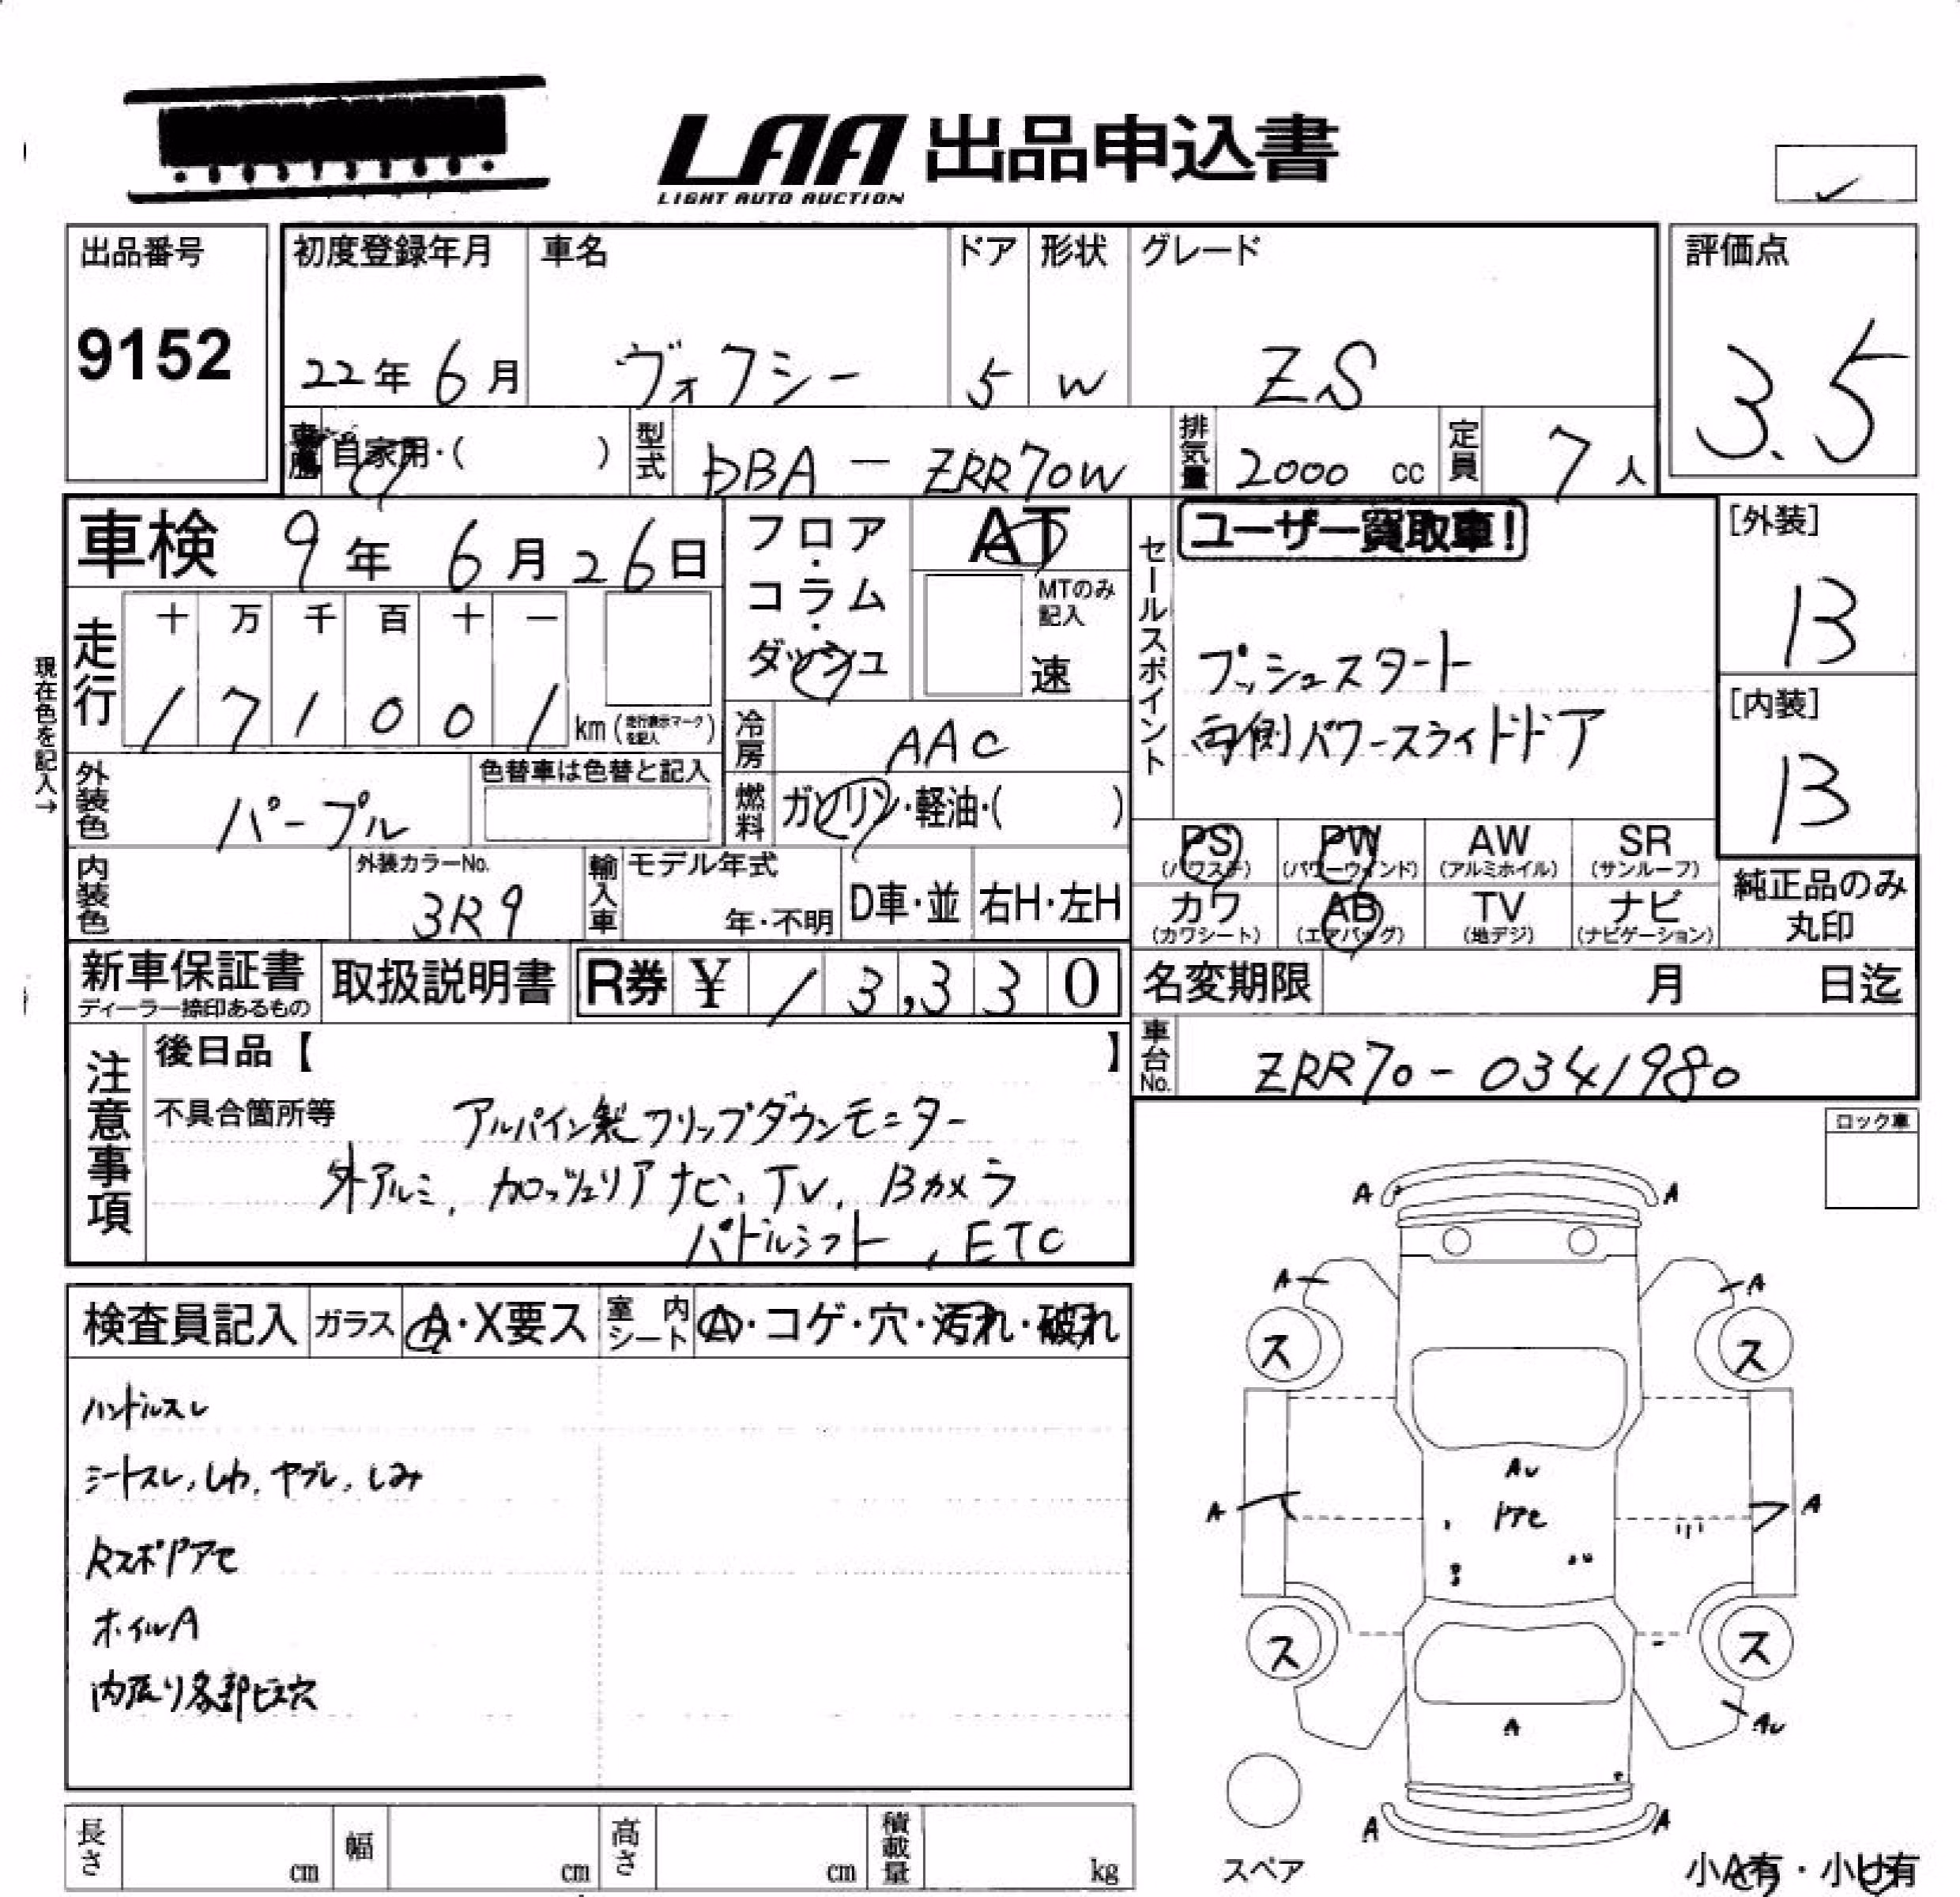 LAA 出品申込書
LIGHT AUTO AUCTION
出品番号
9152
初度登録年月
22年 6月
車名
ヴォクシー
ドア
5
形状
W
グレード
ZS
評価点
3.5
車歴 自家用・( )
型式 DBA - ZRR70W
排気量 2000 cc
定員 7 人
車検 9年 6月 26日
フロア・コラム・ダッシュ
AT
MTのみ記入
速
セールスポイント
ユーザー買取車!
プッシュスタート
両側パワースライドドア
[外装]
B
[内装]
B
現在色を記入→
走行
十 万 千 百 十 一
1 7 1 0 0 1 km (走行表示マークを記入)
冷房 AAC
燃料 ガソリン・軽油・( )
外装色 パープル
色替車は色替と記入
内装色
外装カラーNo.
3R9
輸入車 モデル年式
年・不明
D車・並
右H・左H
PS (パワステ)
PW (パワーウィンド)
AW (アルミホイル)
SR (サンルーフ)
カワ (カワシート)
AB (エアバッグ)
TV (地デジ)
ナビ (ナビゲーション)
純正品のみ丸印
新車保証書
ディーラー捺印あるもの
取扱説明書
R券 ¥ 13,330
名変期限 月 日迄
車台No. ZRR70-0341980
注意事項
後日品【 】
不具合箇所等
アルパイン製フリップダウンモニター
外アルミ、カロッツェリアナビ、TV、Bカメラ
パドルシフト、ETC
ロック車
検査員記入
ガラス A・X要ス
室内シート A・コゲ・穴・汚れ・破れ
ハンドルスレ
シートスレ,しわ,ヤブレ,しみ
RスポPアセ
ホイルA
内張り各部ビス穴
A A
A A
ス ス
Au
A A
ス ス
Au
A
A A
スペア
小A有・小U有
長さ cm
幅 cm
高さ cm
積載量 kg